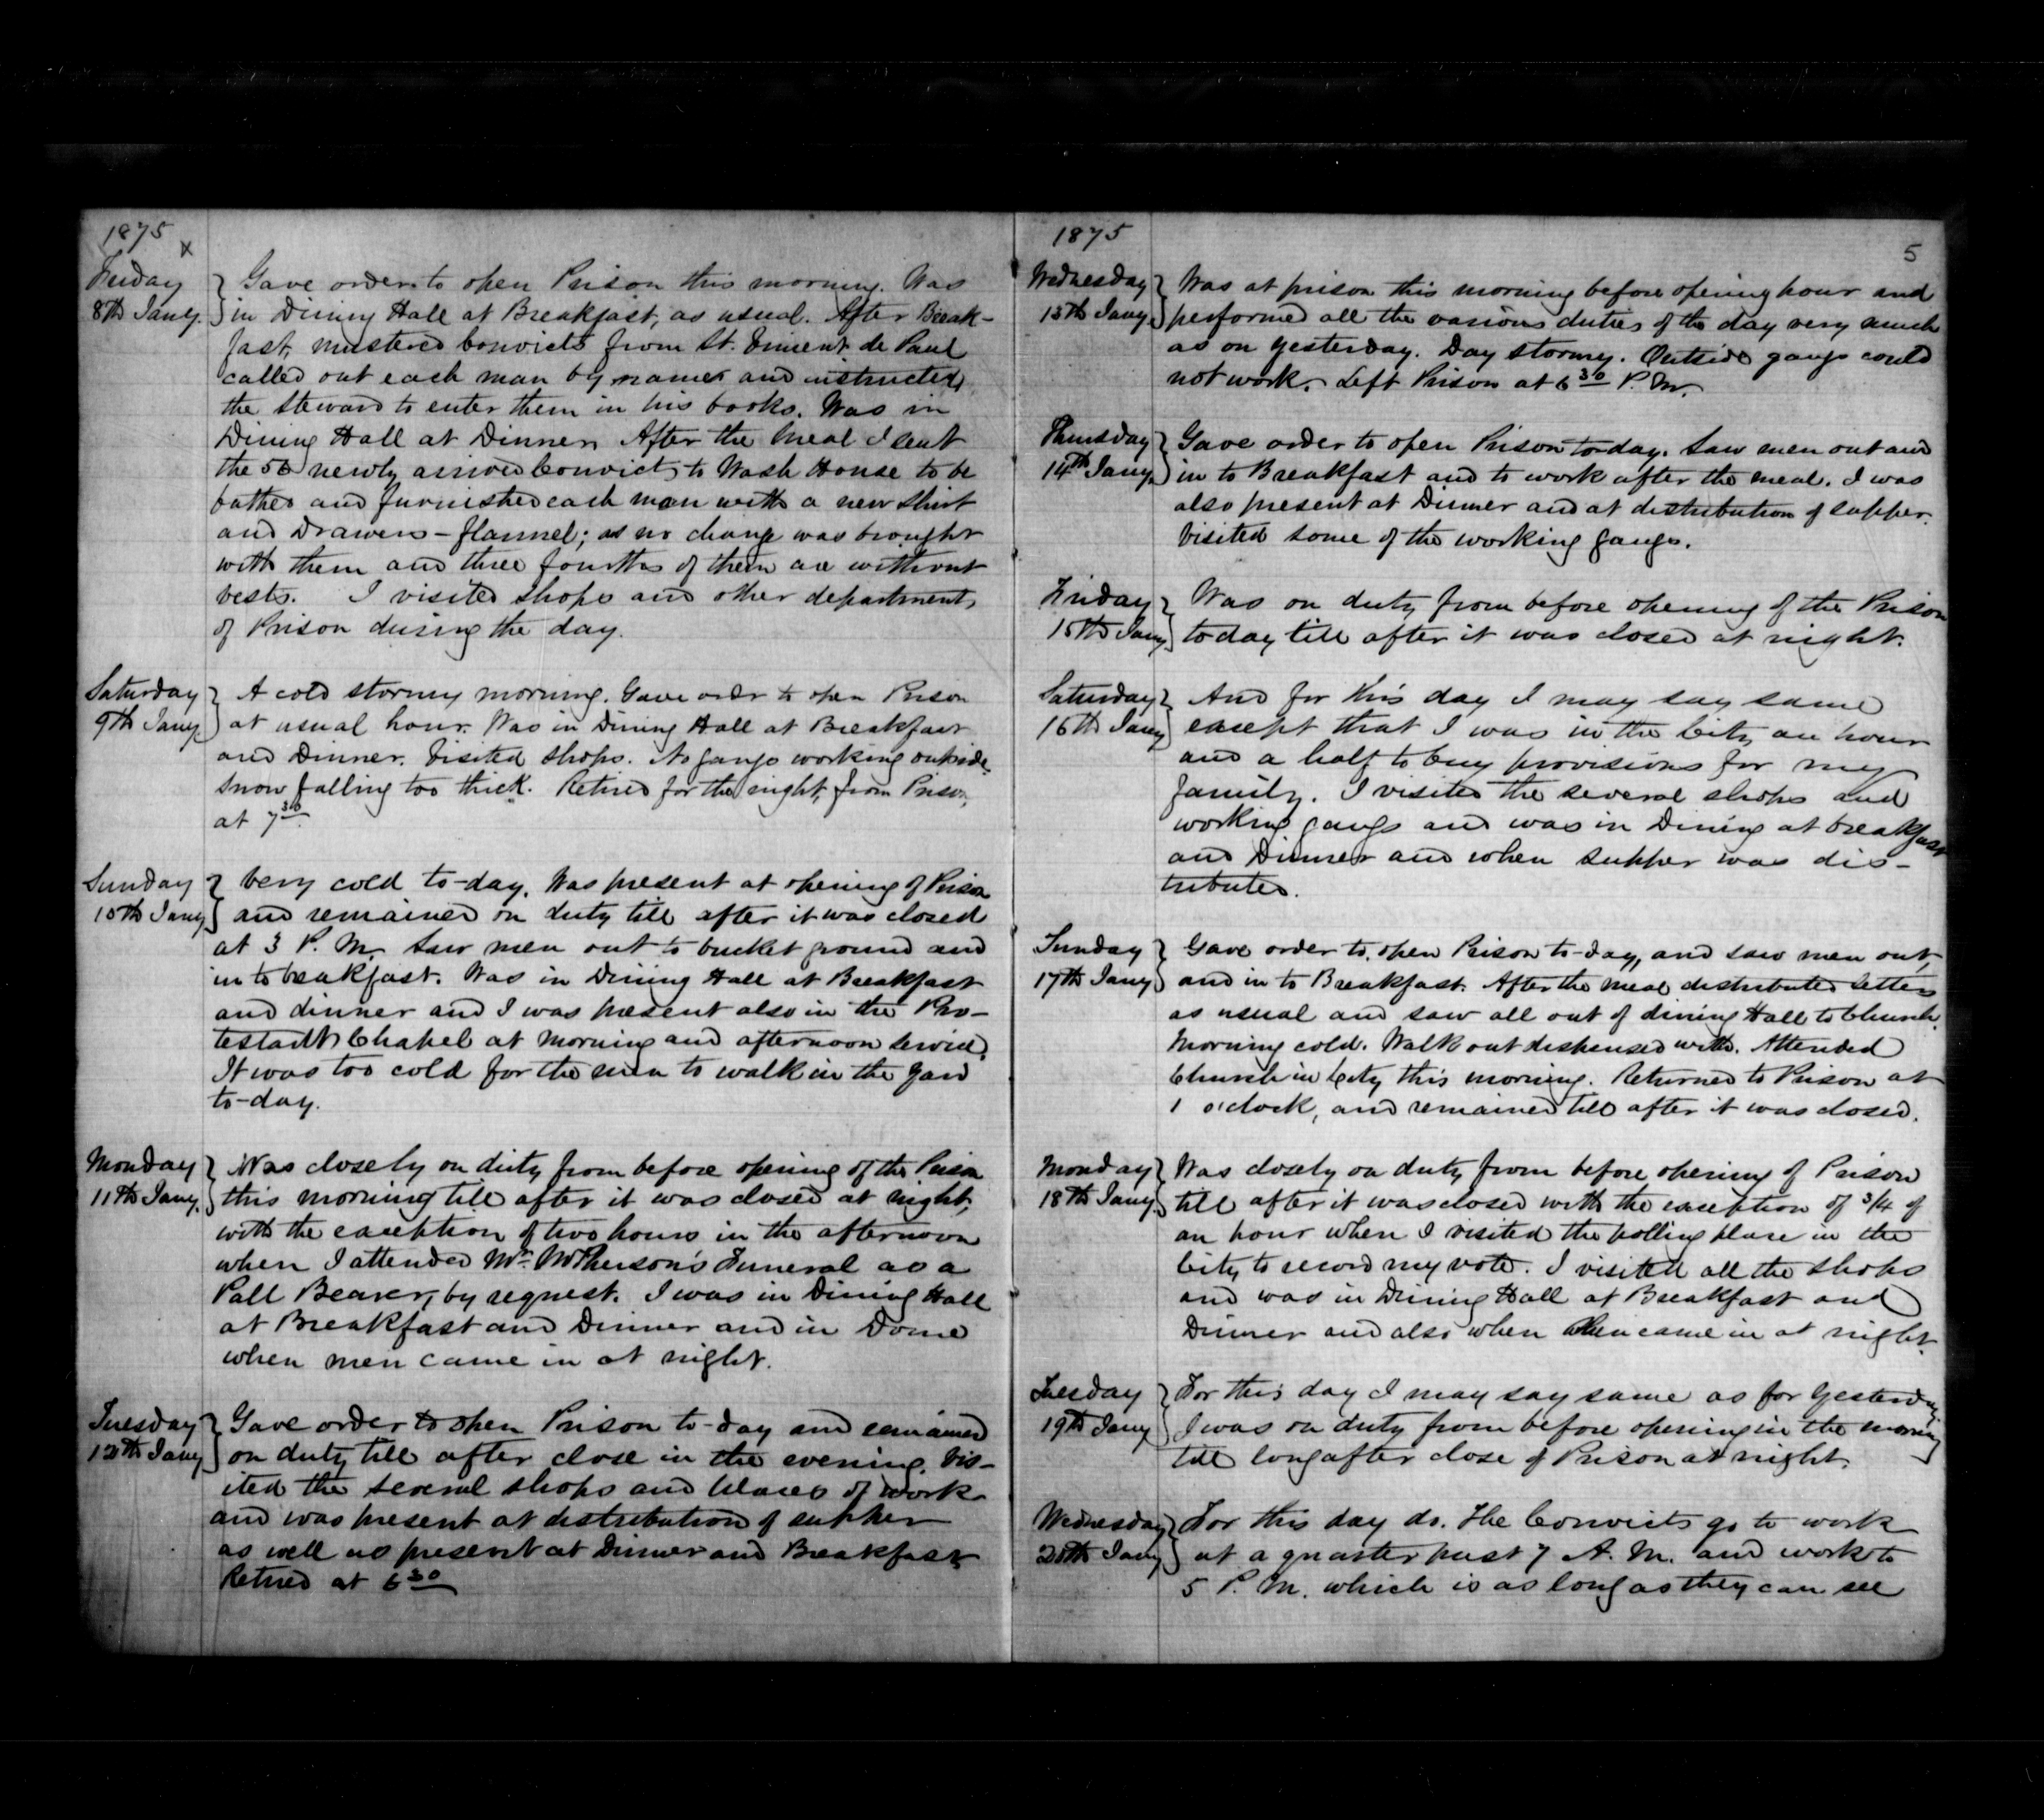 1875
x
Friday } Gave order to open Prison this morning. Was
8th Jany. } in Dining Hall at Breakfast, as usual. After Break-
fast, mustered Convicts from St. Vincent de Paul
called out each man by names and instructed
the Steward to enter them in his books. Was in
Dining Hall at Dinner. After the meal I sent
the 50 newly arrived Convicts to Wash House to be
bathed and furnished each man with a new shirt
and Drawers - flannel; as no change was brought
with them and three fourths of them are without
vests. I visited shops and other departments
of Prison during the day.
Saturday } A cold stormy morning. Gave order to open Prison
9th Jany. } at usual hour. Was in Dining Hall at Breakfast
and Dinner. Visited shops. No gangs working outside,
snow falling too thick. Retired for the night, from Prison,
at 7 30.
Sunday } Very cold to-day. Was present at opening of Prison
10th Jany } and remained on duty till after it was closed
at 3 P. M. Saw men out to bucket ground and
in to breakfast. Was in Dining Hall at Breakfast
and dinner and I was present also in the Pro-
testant Chapel at morning and afternoon service.
It was too cold for the men to walk in the yard
to-day.
Monday } Was closely on duty from before opening of the Prison
11th Jany. } this morning till after it was closed at night,
with the exception of two hours in the afternoon
when I attended Mr. McPherson's Funeral as a
Pall Bearer, by request. I was in Dining Hall
at Breakfast and Dinner and in Dome
when men came in at night.
Tuesday } Gave order to open Prison to-day and remained
12th Jany } on duty till after close in the evening. Vis-
ited the several shops and places of work
and was present at distribution of supper
as well as present at Dinner and Breakfast.
Retired at 6 30
1875
5
Wednesday } Was at prison this morning before opening hour and
13th Jany. } performed all the various duties of the day very much
as on yesterday. Day stormy. Outside gangs could
not work. Left Prison at 6 30 P. M.
Thursday } Gave order to open Prison to-day. Saw men out and
14th Jany. } in to Breakfast and to work after the meal. I was
also present at Dinner and at distribution of supper.
Visited some of the working gangs.
Friday } Was on duty from before opening of the Prison
15th Jany } to day till after it was closed at night.
Saturday } And for this day I may say same
16th Jany } except that I was in the City an hour
and a half to buy provisions for my
family. I visited the several shops and
working gangs and was in Dining at breakfast
and Dinner and when supper was dis-
tributed.
Sunday } Gave order to open Prison to-day, and saw men out,
17th Jany } and in to Breakfast. After the meal distributed letters
as usual and saw all out of dining Hall to Church.
Morning cold. Walk out dispensed with. Attended
Church in City this morning. Returned to Prison at
1 o'clock, and remained till after it was closed.
Monday } Was closely on duty from before opening of Prison
18th Jany. } till after it was closed with the exception of 3/4 of
an hour when I visited the polling place in the
City to record my vote. I visited all the shops
and was in Dining Hall at Breakfast and
Dinner and also when Men came in at night.
Tuesday } For this day I may say same as for yesterday.
19th Jany } I was on duty from before opening in the morning
till long after close of Prison at night.
Wednesday } For this day do. The Convicts go to work
20th Jany } at a quarter past 7 A. M. and work to
5 P. M. which is as long as they can see